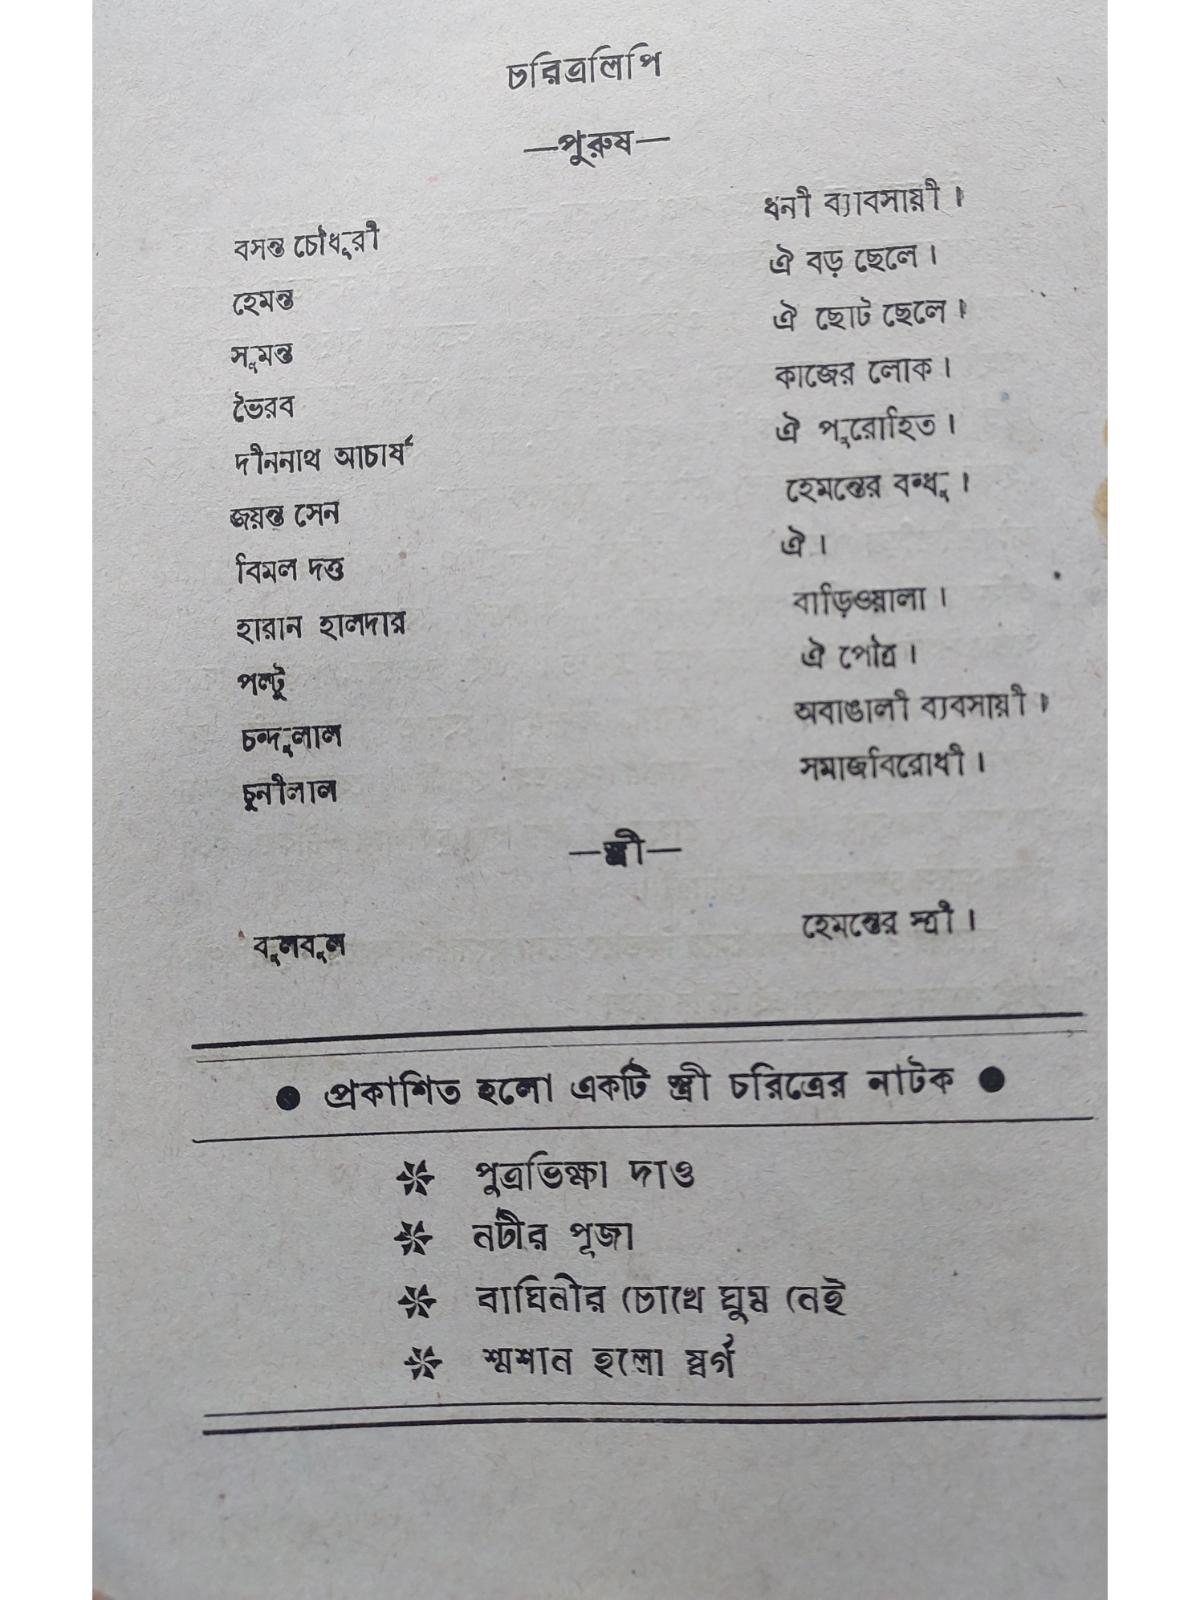 চরিত্রলিপি
—পুরুষ—
বসন্ত চৌধুরী ধনী ব্যাবসায়ী ।
হেমন্ত ঐ বড় ছেলে ।
সুমন্ত ঐ ছোট ছেলে ।
ভৈরব কাজের লোক ।
দীননাথ আচার্য ঐ পুরোহিত ।
জয়ন্ত সেন হেমন্তের বন্ধু ।
বিমল দত্ত ঐ ।
হারান হালদার বাড়িওয়ালা ।
পল্টু ঐ পৌত্র ।
চন্দুলাল অবাঙালী ব্যবসায়ী ।
চুনীলাল সমাজবিরোধী ।
—স্ত্রী—
বুলবুল হেমন্তের স্ত্রী ।
● প্রকাশিত হলো একটি স্ত্রী চরিত্রের নাটক ●
পুত্রভিক্ষা দাও
নটীর পূজা
বাঘিনীর চোখে ঘুম নেই
শ্মশান হলো স্বর্গ